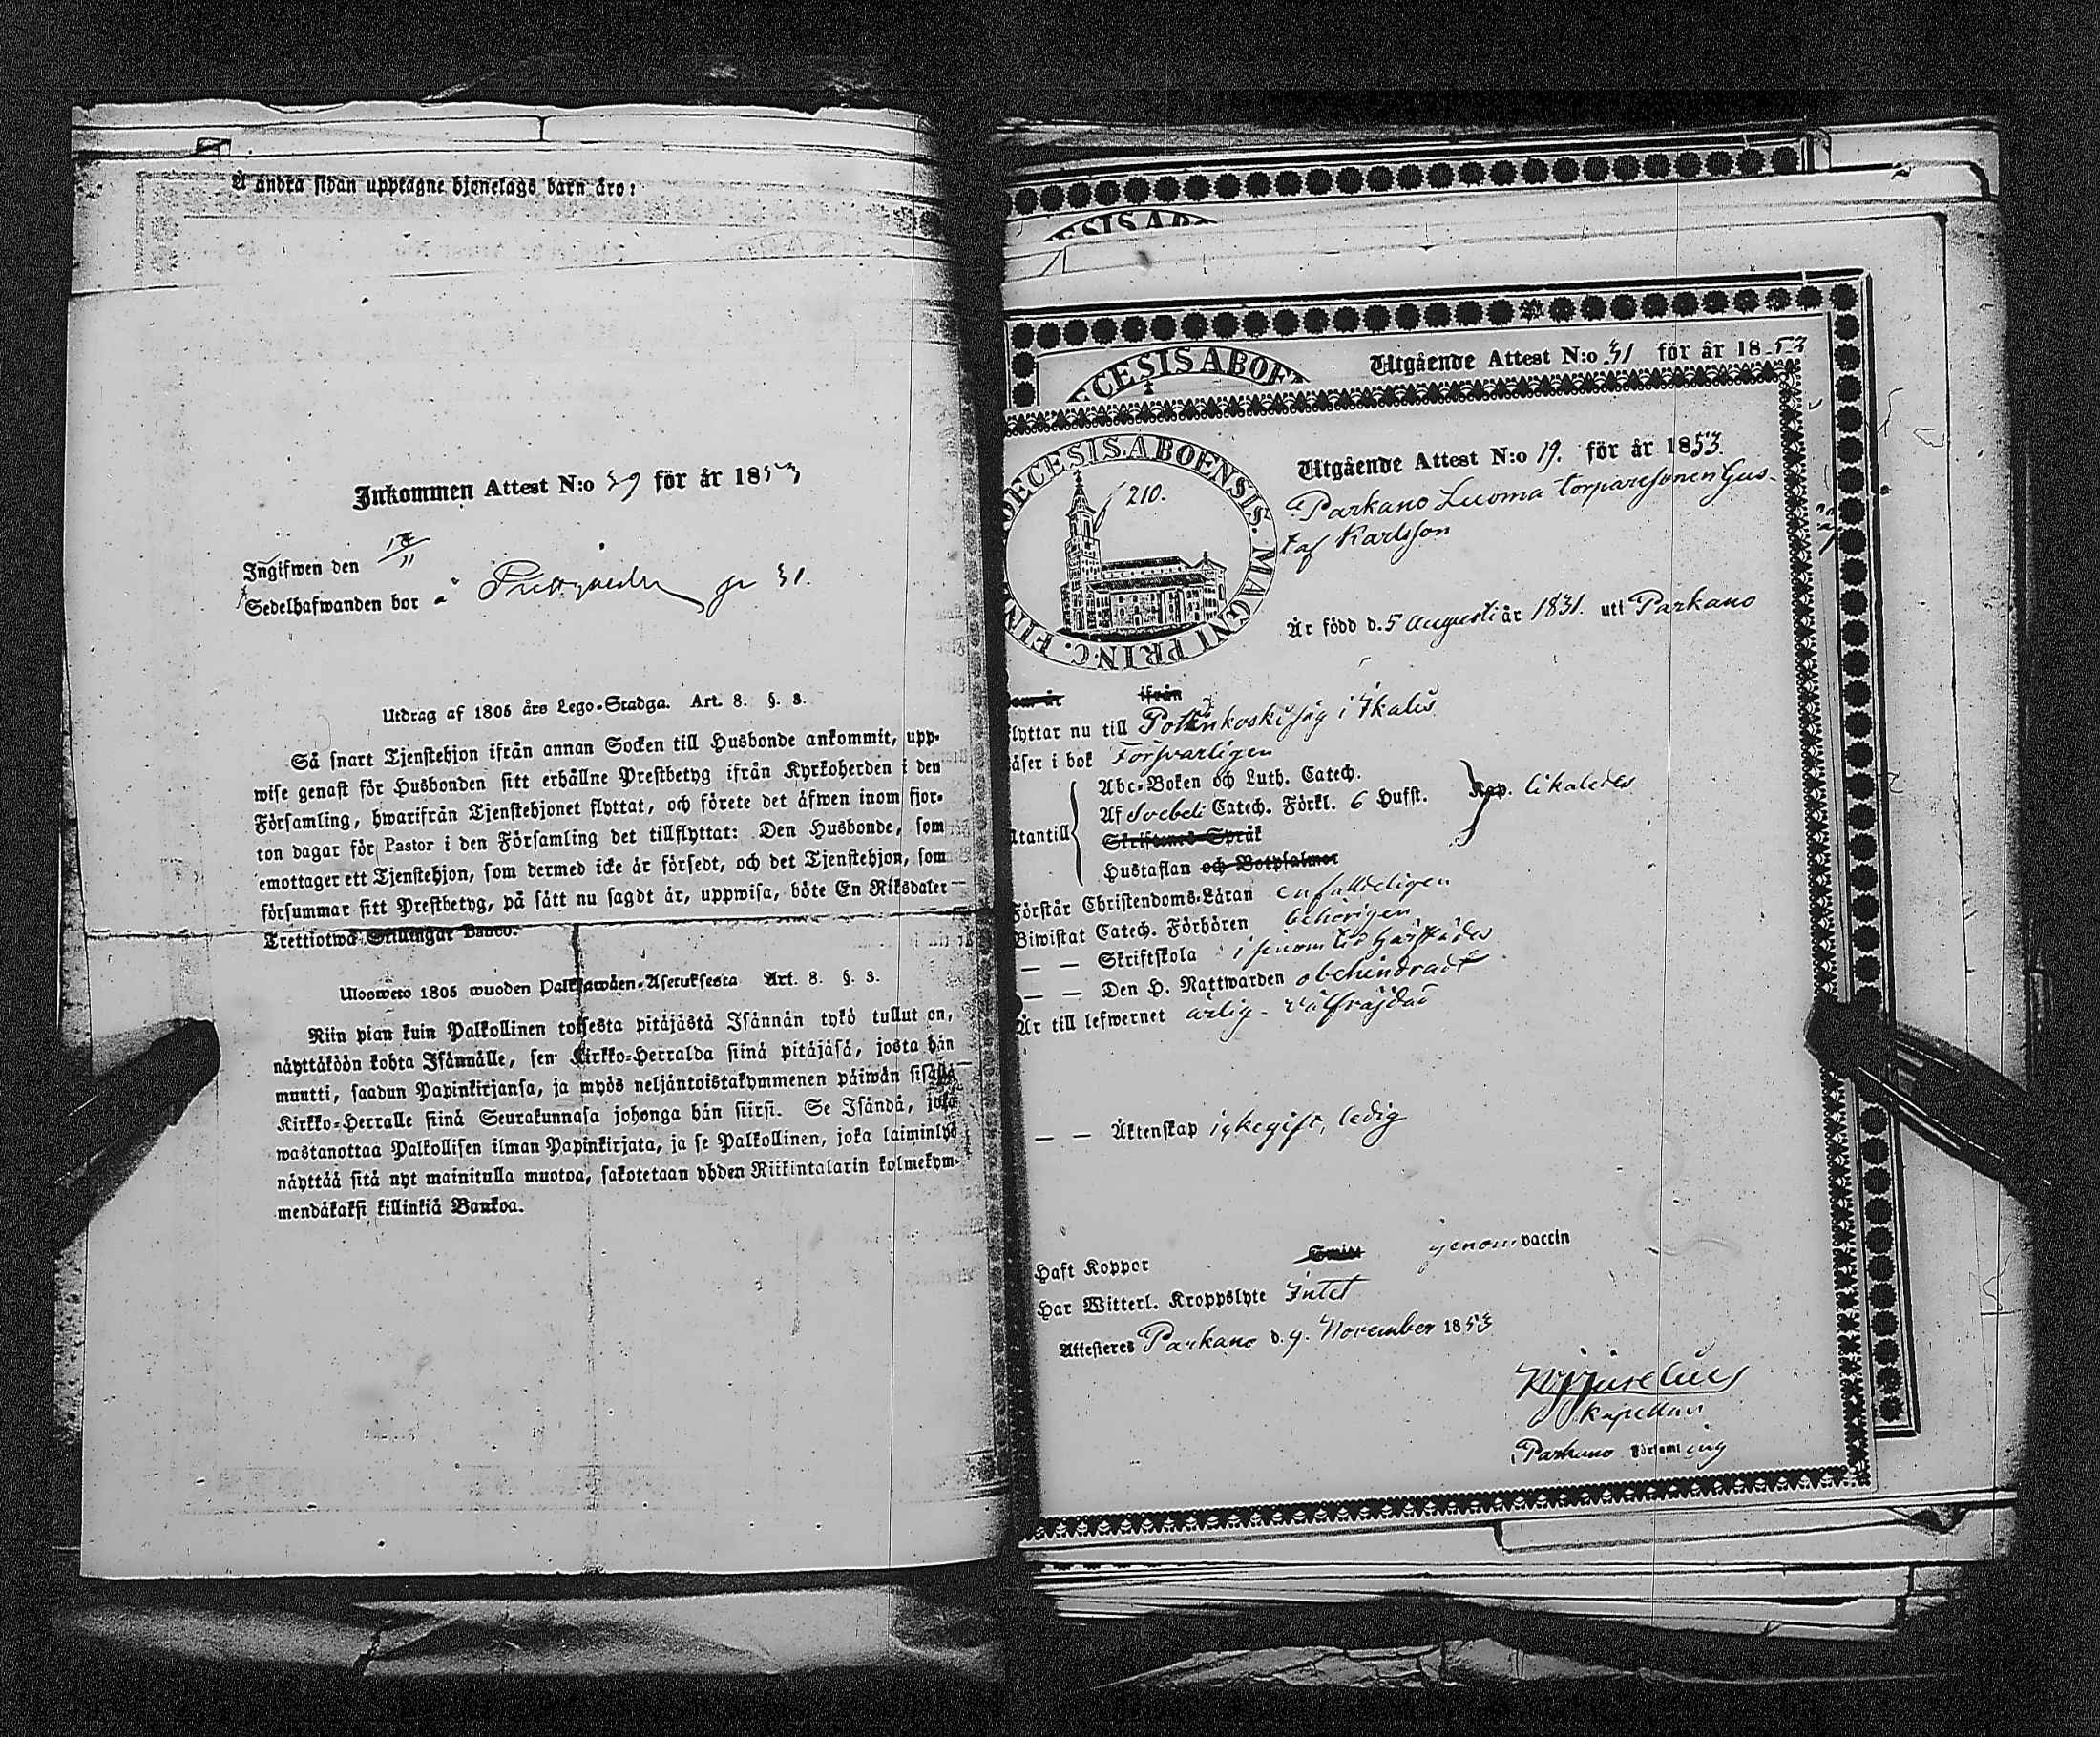 Å andra sidan upptagne hjonelags barn äro:
Inkommen Attest N:o 39 för år 1853
Ingifwen den 18/11
Sedelhafwanden bor å
Utdrag af 1805 års Lego-Stadga. Art. 8. §. 3.
Så snart Tjenstehjon ifrån annan Socken till Husbonde ankommit, upp-
wise genast för Husbonden sitt erhållne Prestbetyg ifrån Kyrkoherden i den
Församling, hwarifrån Tjenstehjonet flyttat, och förete det äfwen inom fjor-
ton dagar för Pastor i den Församling det tillflyttat: Den Husbonde, som
emottager ett Tjenstehjon, som dermed icke är försedt, och det Tjenstehjon, som
försummar sitt Prestbetyg, på sätt nu sagdt är, uppwisa, böte En Riksdaler
Trettiotwå Skillingar Banco.
Ulosweto 1805 wuoden Palkkawäen-Asetuksesta Art. 8. §. 3.
Niin pian kuin Palkollinen toisesta pitäjästä Isännän tykö tullut on,
näyttäköön kohta Isännälle, sen Kirkko-Herralda siinä pitäjäsä, josta hän
muutti, saadun Papinkirjansa, ja myös neljäntoistakymmenen päiwän sisällä
Kirkko-Herralle siinä Seurakunnasa johonga hän siirsi. Se Isändä, joka
wastanottaa Palkollisen ilman Papinkirjata, ja se Palkollinen, joka laiminlyö
näyttää sitä nyt mainitulla muotoa, sakotetaan yhden Riikintalarin kolmekym-
mendäkaksi killinkiä Bankoa.
ESIS AB
Utgående Attest N:o 31 för år 1853
ECESIS ABOE
Utgående Attest N:o 19. för år 1853.
DECESIS. ABOENSIS. MAGNI PRINC. FIN
210.
Parkano Luoma torparesonen Gus-
taf Karlsson
Är född d. 5 Augusti år 1831. uti Parkano
ifrån
flyttar nu till i Ikalis
läser i bok Försvarligen
Utantill
Abc-Boken och Luth. Catech.
Af Svebeli Catech. Förkl. 6 Hufst. likaledes
Skriftenes Språk
Hustaflan och Botpsalmer
Förstår Christendoms-Läran enfaldeligen
Biwistat Catech. Förhören behörigen
— — Skriftskola
— — Den H. Nattwarden obehindradt
Är till lefwernet ärlig - välfräjdad
— — Äktenskap ickegift, ledig
Haft Koppor genom vaccin
Har Witterl. Kroppslyte Intet
Attesteres Parkano d. 4. November 1853
Kapellan
i Parkano Församling